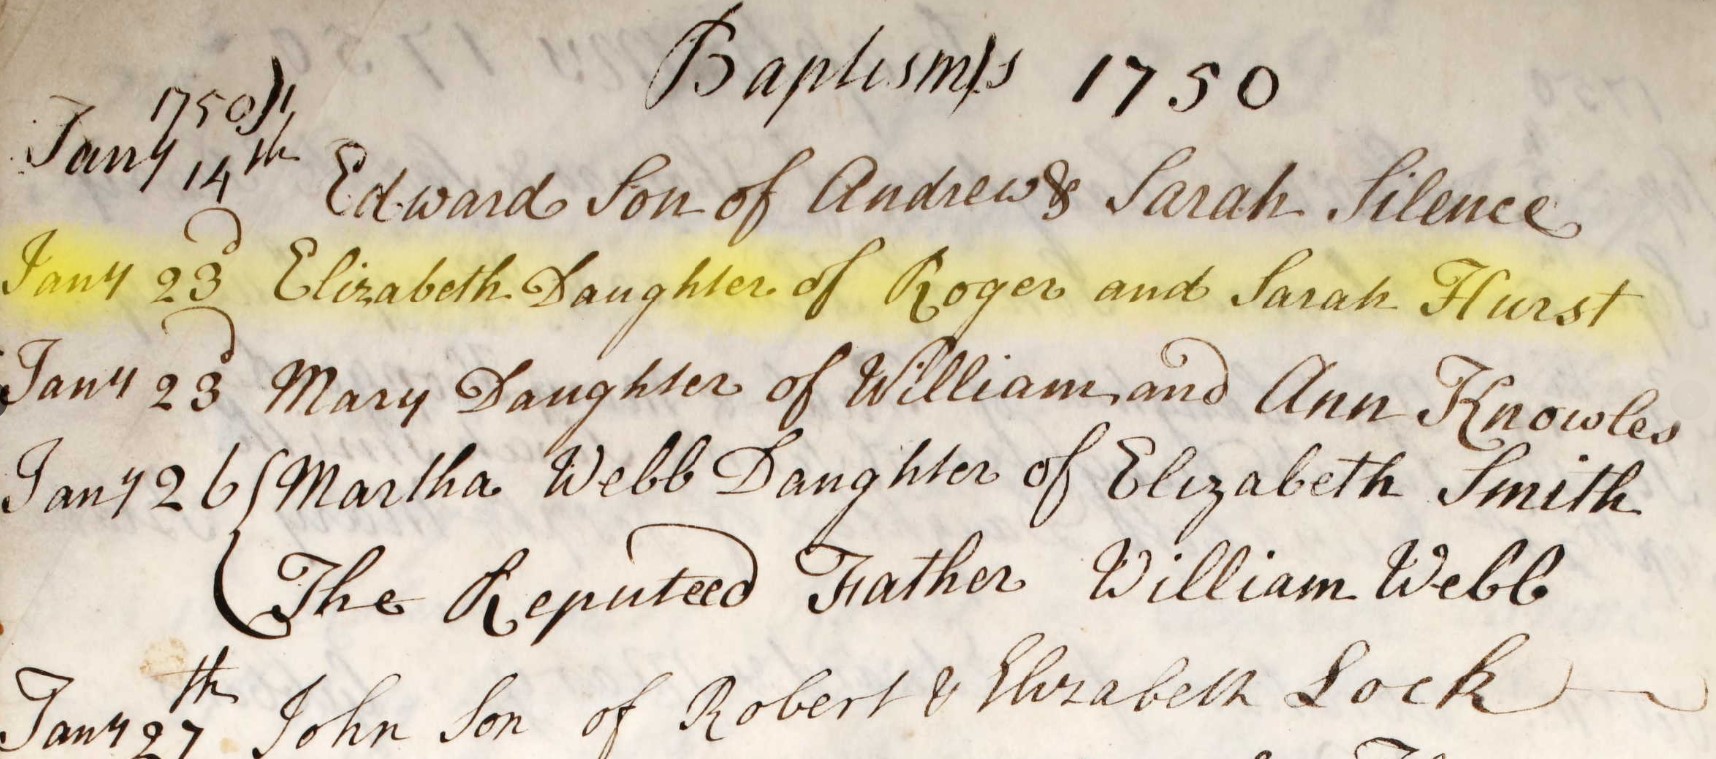 Baptisms 1750
1750/1
Jany 14th Edward Son of Andrew & Sarah Silence
Jany 23d Elizabeth Daughter of Roger and Sarah Hurst
Jany 23d Mary Daughter of William and Ann Knowles
Jany 26 Martha Webb Daughter of Elizabeth Smith
The Reputeed Father William Webb
Jany 27th John Son of Robert & Elizabeth Lock